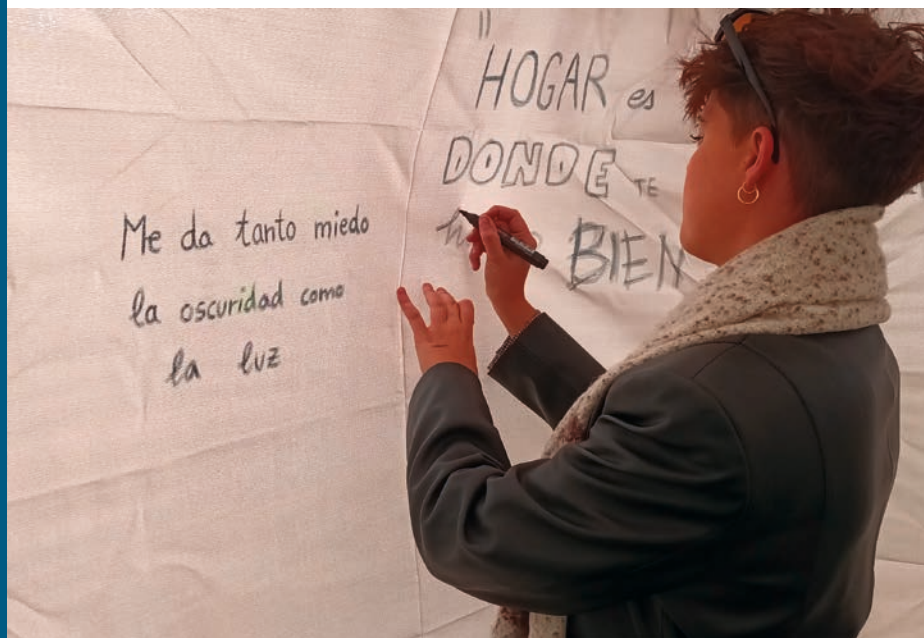 Me da tanto miedo
la oscuridad como
la luz
"
HOGAR es
DONDE TE
BIEN